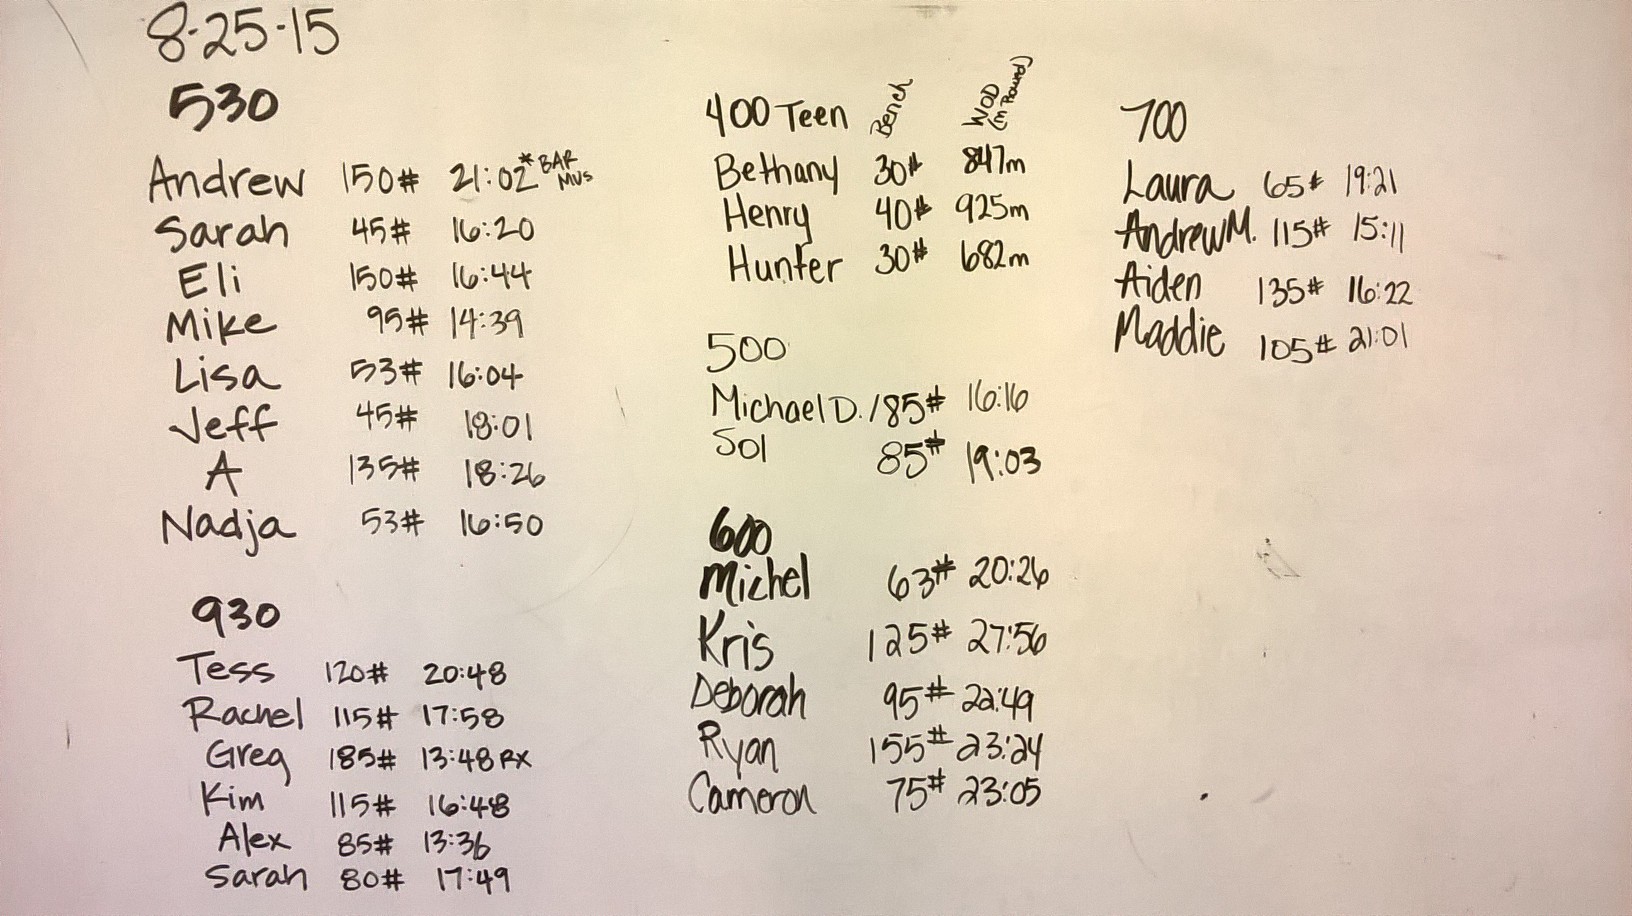 8-25-15
530
Andrew 150# 21:02* BAR MUs
Sarah 45# 16:20
Eli 150# 16:44
Mike 95# 14:39
Lisa 53# 16:04
Jeff 45# 18:01
A 135# 18:26
Nadja 53# 16:50
930
Tess 120# 20:48
Rachel 115# 17:58
Greg 185# 13:48 RX
Kim 115# 16:48
Alex 85# 13:36
Sarah 80# 17:49
400 Teen Bench WOD (m Rowed)
Bethany 30# 847m
Henry 40# 925m
Hunter 30# 682m
500
Michael D. 185# 16:16
Sol 85# 19:03
600
Michel 63# 20:26
Kris 125# 27:56
Deborah 95# 22:49
Ryan 155# 23:24
Cameron 75# 23:05
700
Laura 65# 19:21
Andrew M. 115# 15:11
Aiden 135# 16:22
Maddie 105# 21:01